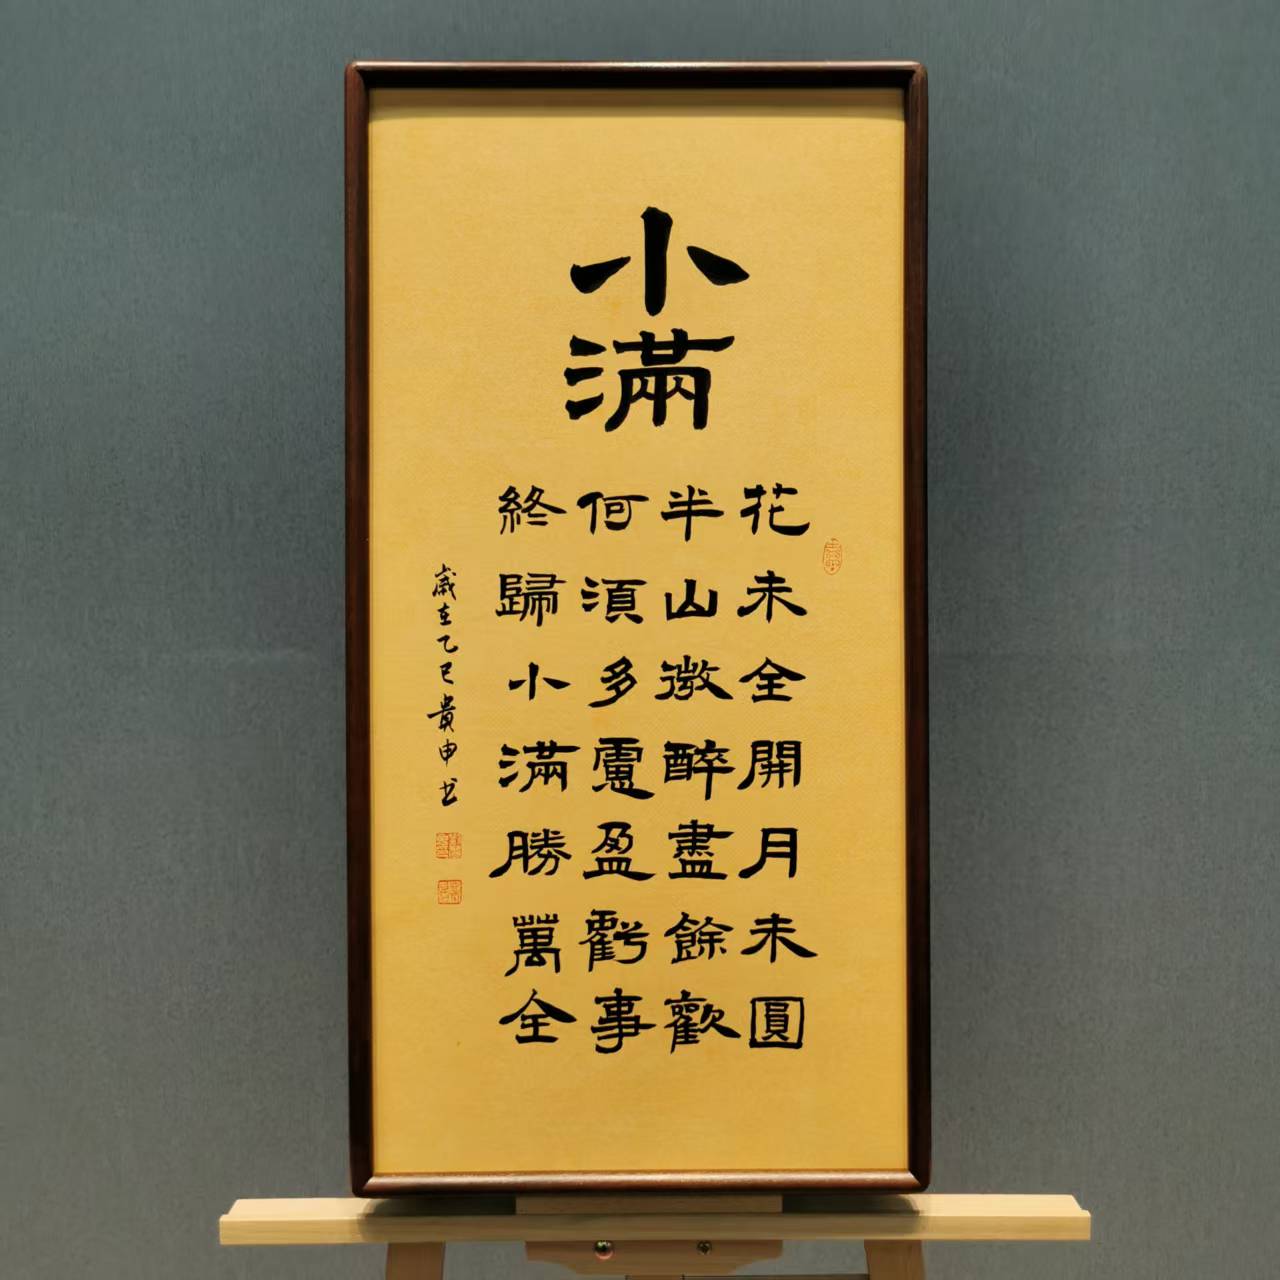 小滿
花未全開月未圓
半山微醉盡餘歡
何須多慮盈虧事
終歸小滿勝萬全
歲在乙巳貴申书